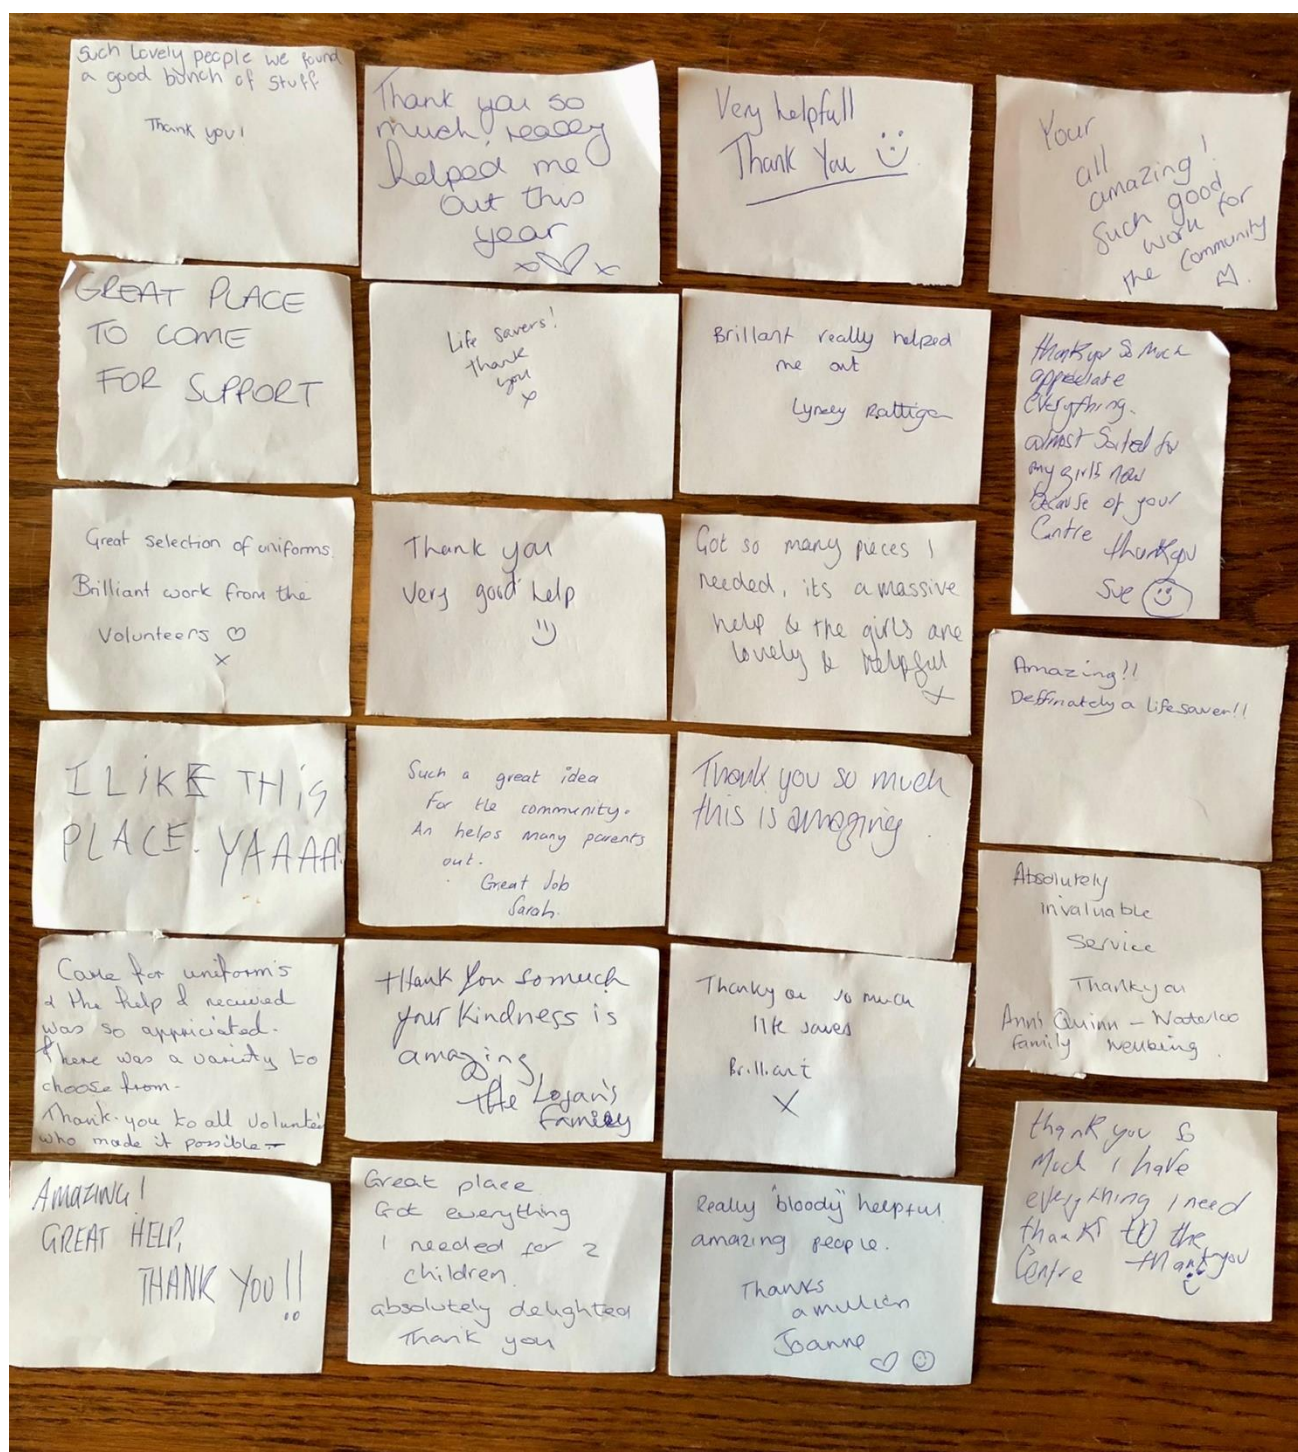 Such Lovely people we found
a good bunch of stuff
Thank you!
Thank you so
much, really
helped me
out this
year
x x
Very helpfull
Thank You
Your
all
amazing!
Such good
work for
the community
GREAT PLACE
TO COME
FOR SUPPORT
Life savers!
thank
you
x
Brillant really helped
me out
Lynsey Rattigan
thankyou So Much
appreciate
everything.
almost Sorted for
my girls now
because of your
Centre
thankyou
Sue
Great selection of uniforms.
Brilliant work from the
Volunteers
x
Thank you
Very good help
Got so many pieces I
needed, its a massive
help & the girls are
lovely & helpful
x
Amazing!!
Deffinately a lifesaver!!
I LiKE THiS
PLACE. YAAAA!
Such a great idea
For the community.
An helps many parents
out.
Great Job
Sarah.
Thank you so much
this is amazing.
Absolutely
invaluable
Service
Thankyou
Ann Quinn - Waterloo
family
Came for uniform's
& the help I recieved
was so appriciated.
There was a variety to
choose from.
Thank-you to all Volunte
who made it possible -
tHank You so much
your Kindness is
amazing
the Logan's
Family
Thankyou so much
life saves
Brilliant
X
thank you So
Much i have
everything i need
thanks to the
Centre thank you
Amazing!
GREAT HELP,
THANK YOU!!
Great place.
Got everything
I needed for 2
children.
absolutely delighted
Thank you
Really "bloody" helpful.
amazing people.
Thanks
a million
Joanne